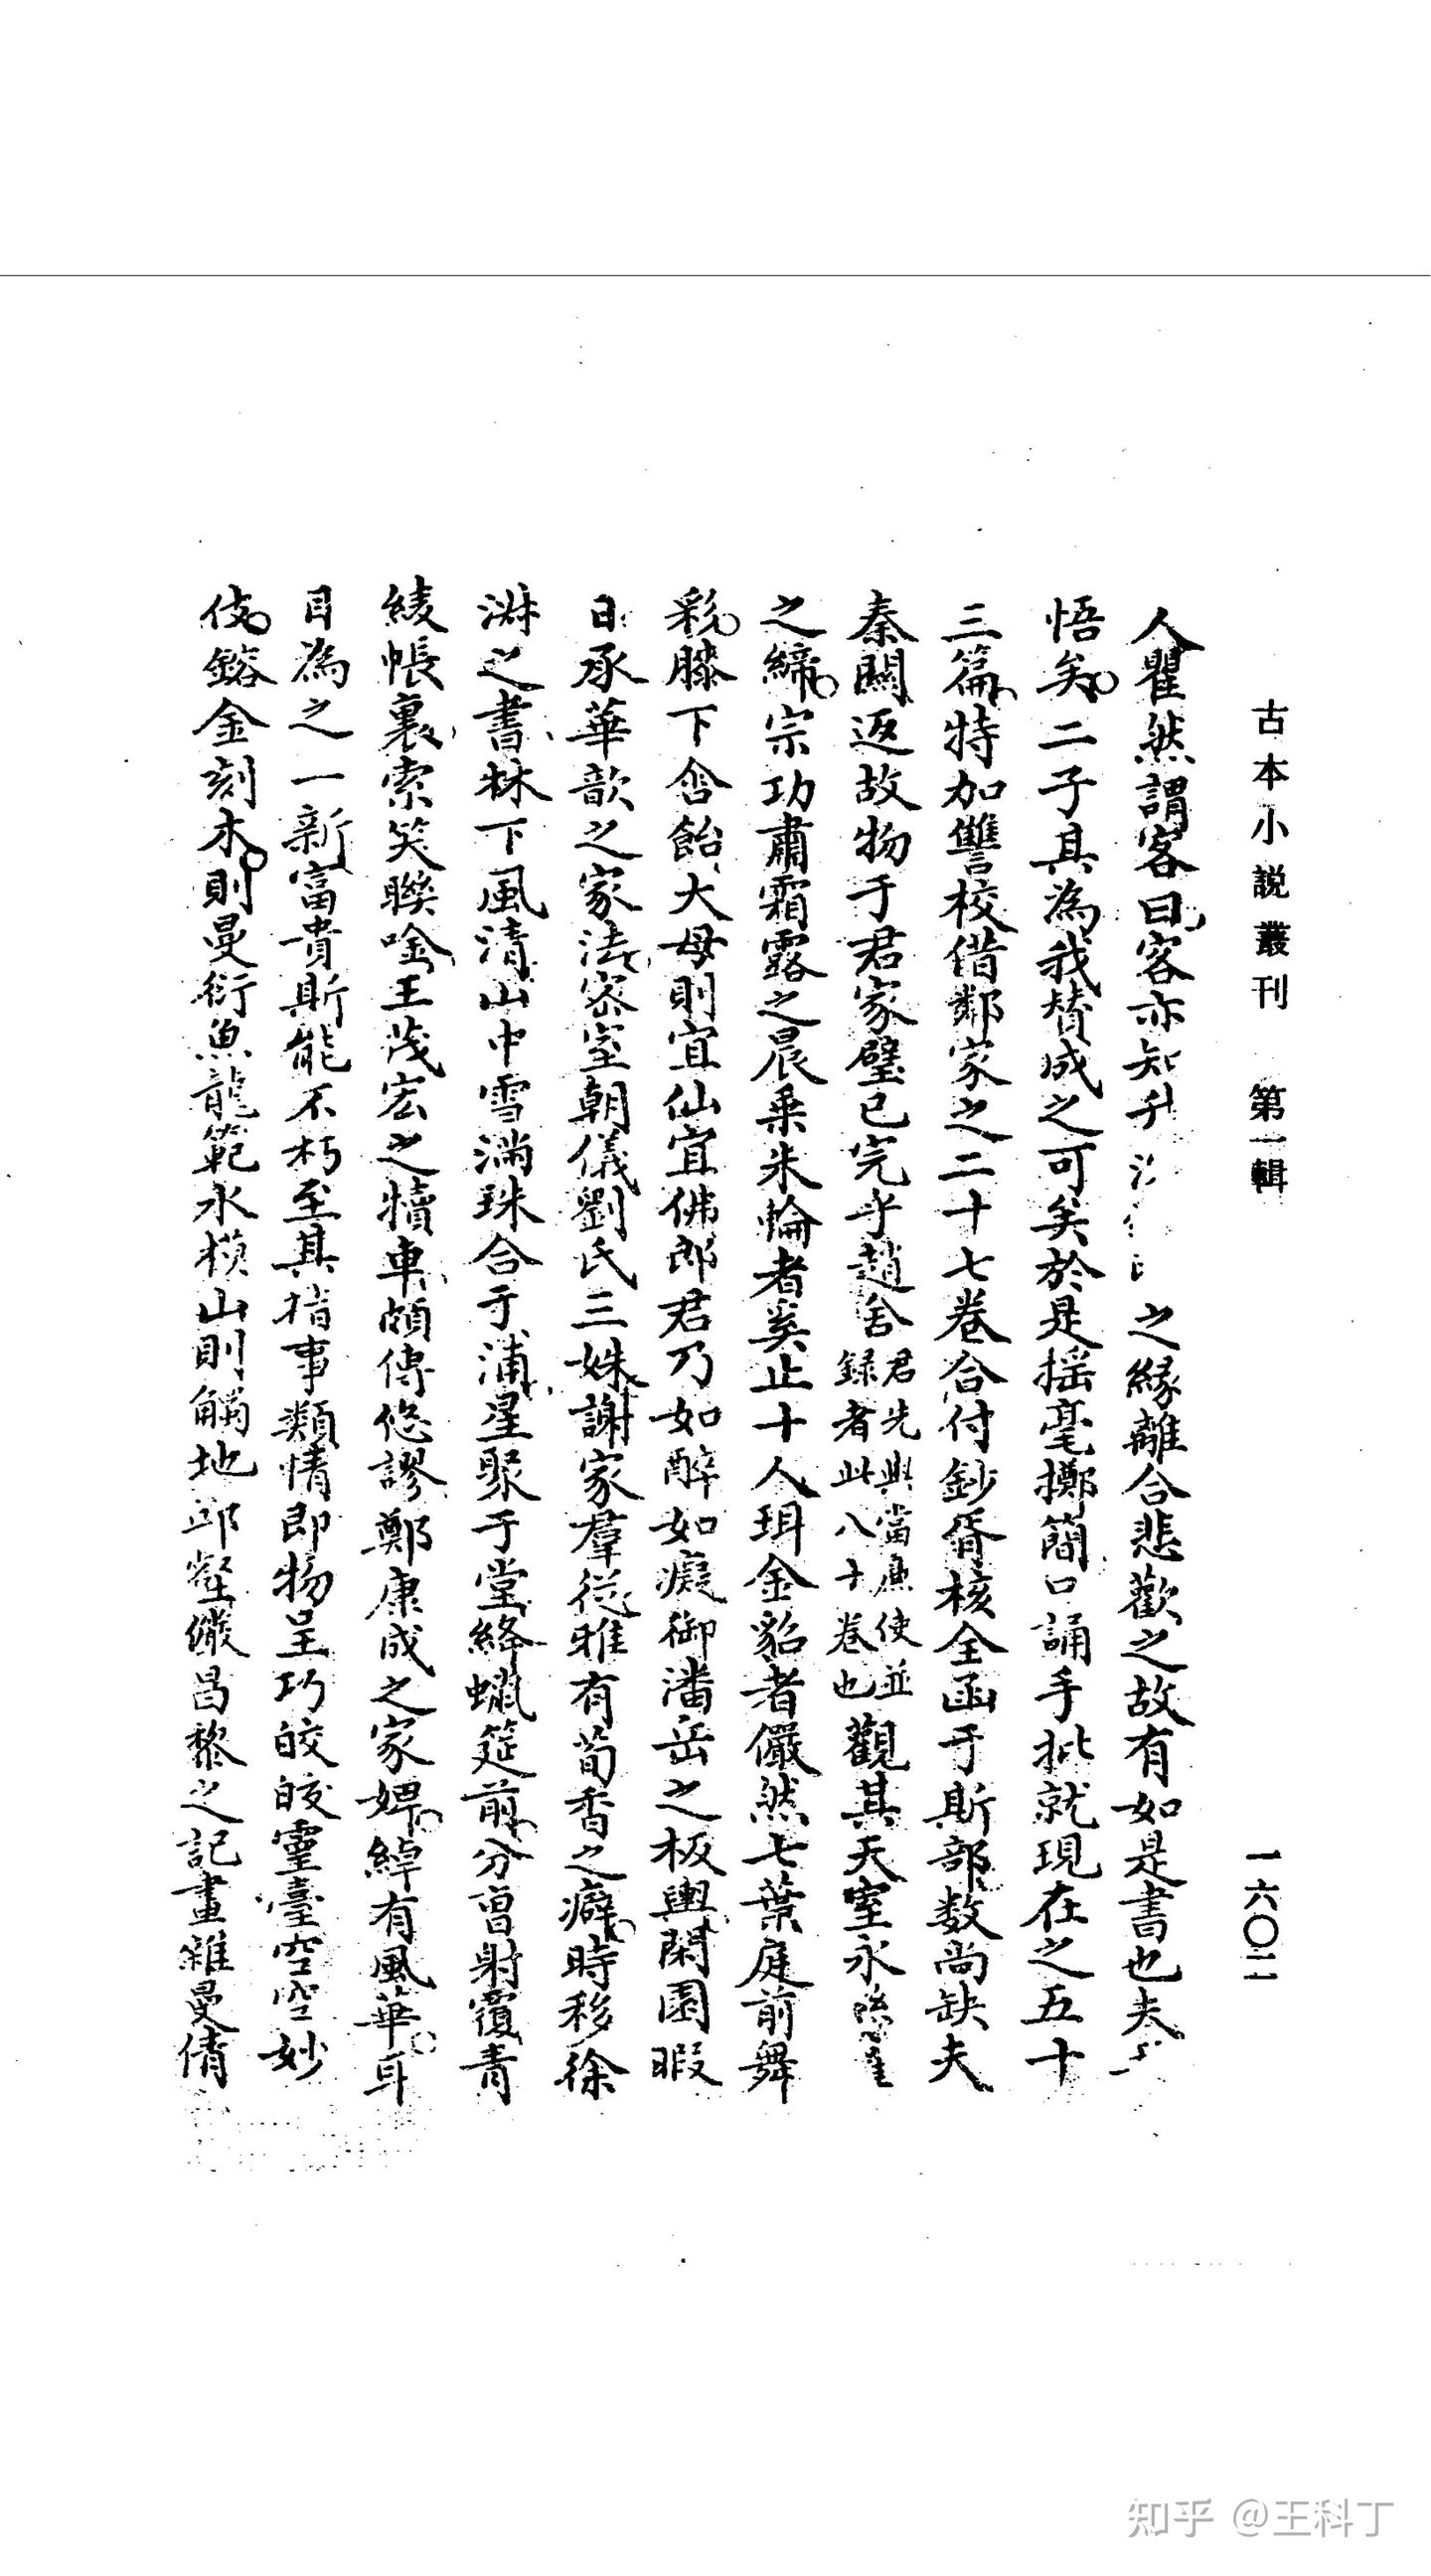 古本小説叢刊 第一輯
一六〇二
人瞿然謂客曰客亦知升之緣離合悲歡之故有如是書也夫
悟矣二子其為我贊成之可矣於是搖毫擲簡口誦手批就現在之五十
三篇特加讐校借鄰家之二十七卷合付鈔胥核全函于斯部數尚缺夫
秦關返故物于君家璧已完乎趙舍君先與當廉使並録者此八十卷也觀其天室永
之締宗功肅霜露之晨乘朱輪者奚止十人珥金貂者儼然七葉庭前舞
彩膝下含飴大母則宜仙宜佛郎君乃如醉如癡御潘岳之板輿閑園暇
日承華歆之家法密室朝儀劉氏三姝謝家羣從雅有荀香之癖時移徐
淋之書林下風清山中雪滿珠合于浦星聚于堂絳蠟筵前分曹射覆青
綾帳裏索笑聯唫王茂宏之犢車頗傳悠謬鄭康成之家婢綽有風華耳
目為之一新富貴斯能不朽至其指事類情即物呈巧皎皎靈臺空空妙
伎鎔金刻木則曼衍魚龍範水模山則觸地邱壑儼昌黎之記畫雜曼倩
知乎 @王科丁